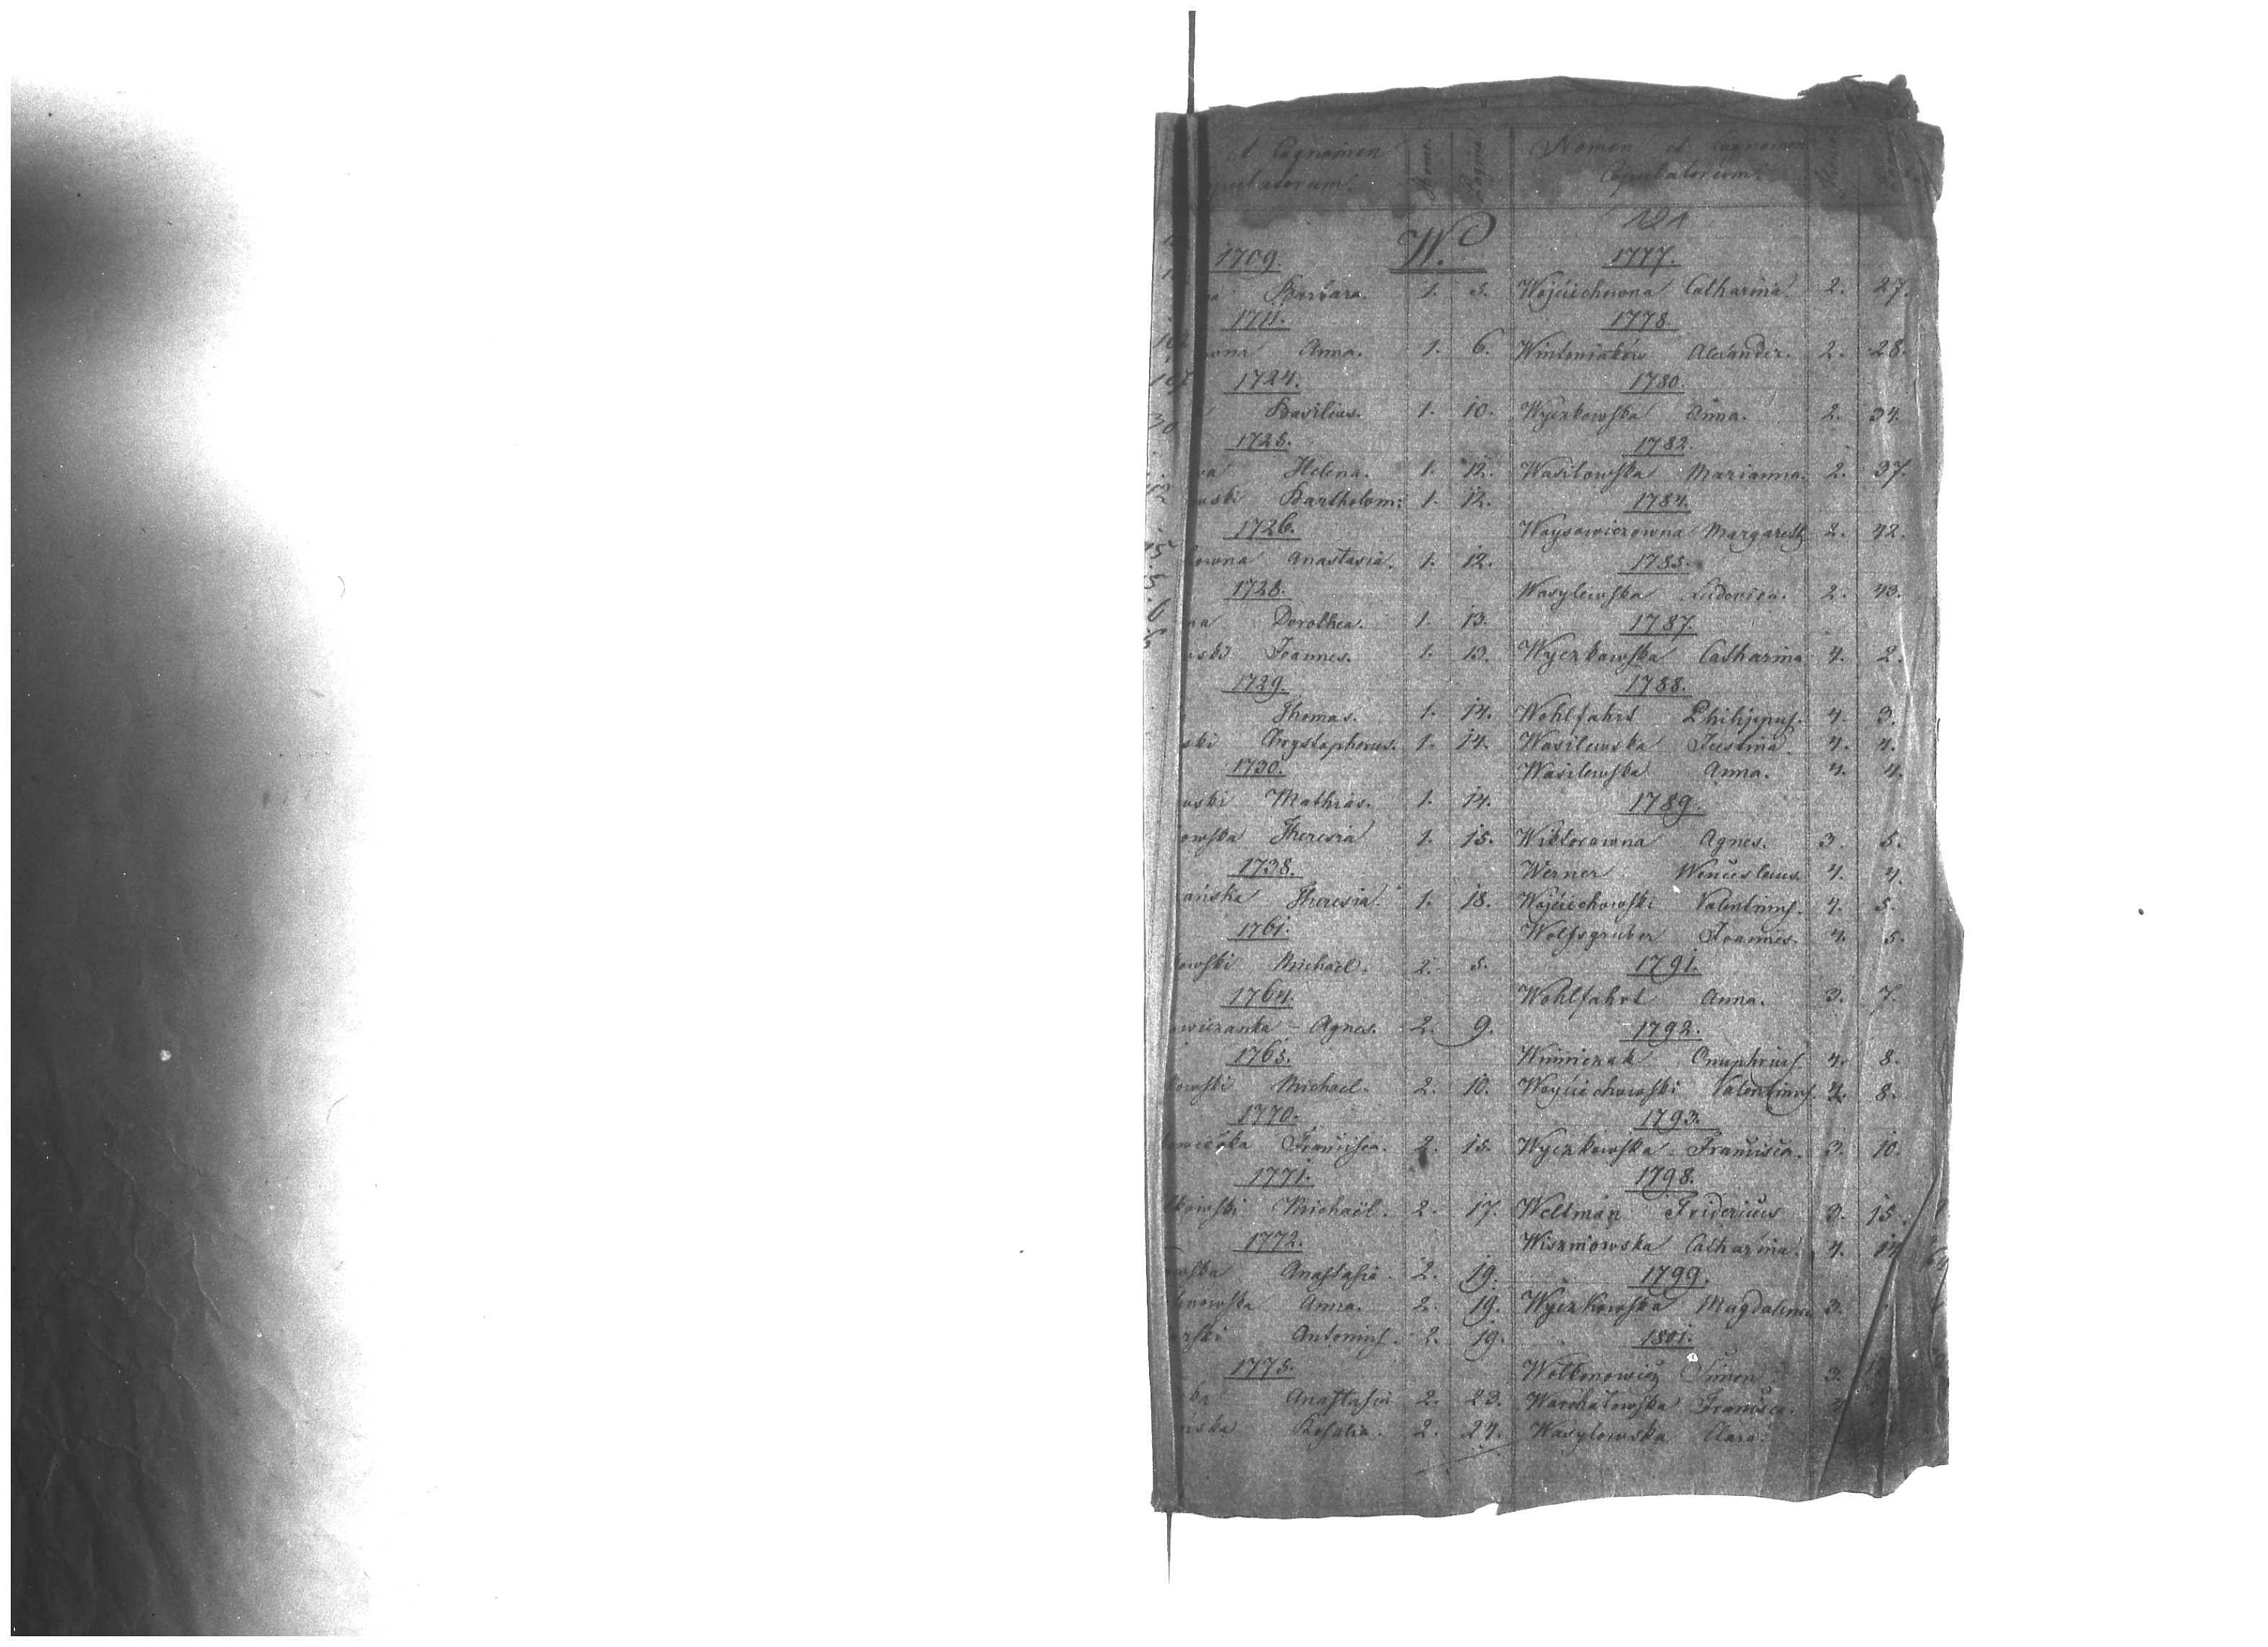 et Cognomen Tomi. Pagina
Copulatorum.
W.
1709.
Barbara. 1. 5.
1711.
owna Anna. 1. 6.
1724.
Basilius. 1. 10.
1725.
Helena. 1. 12.
Bartholom: 1. 12.
1726.
owna Anastasia. 1. 12.
1728.
na Dorothea. 1. 13.
ski Joannes. 1. 13.
1729.
Thomas. 1. 14.
ski Chrystophorus. 1. 14.
1730.
wski Mathias. 1. 14.
owska Theresia 1. 15.
1738.
anska Theresia. 1. 18.
1761.
kowski Michael. 2. 5.
1764.
owiczanka - Agnes. 2. 9.
1765.
kowski Michael. 2. 10.
1770.
Francisca. 2. 15.
1771.
kowski Michaël. 2. 17.
1772.
wska Anastasia 2. 19.
nowska Anna. 2. 19.
rski Antonius. 2. 19.
1775.
Anastasia 2. 23.
nska Rosalia. 2. 24.
Nomen et Cognomen
Copulatorum.
121
1777.
Wojciechowna Catharina 2. 27.
1778.
Wintoniakow Alexander. 2. 28.
1780.
Wyczkowska Anna. 2. 34.
1782.
Wasilowska Marianna. 2. 37.
1784.
Woysowiczowna Margareth 2. 42.
1785.
Wasylewska Ludovica. 2. 43.
1787.
Wyczkowska Catharina 4. 2.
1788.
Wohlfahrt Philippus. 4. 3.
Wasilewska Justina. 4. 4.
Wasilewska Anna. 4. 4.
1789.
Wiktorowna Agnes. 3. 5.
Werner Wenceslaus. 4. 4.
Wojciechowski Valentinus. 4. 5.
Wolfsgruber Joannes. 4. 5.
1791.
Wohlfahrt Anna. 3. 7.
1792.
Winniczak Onuphrius 4. 8.
Woyciechowski Valentinus. 8.
1793.
Wyczkowska - Francisca. 3. 10.
1798.
Weltman Fridericus 3. 15.
Wiszniowska Catharina. 4. 14
1799.
Wyczkowska Magdalena 3.
1801.
Wolkonowicz Simon 3.
Warchalowska Francisca.
Wasylowska Clara.